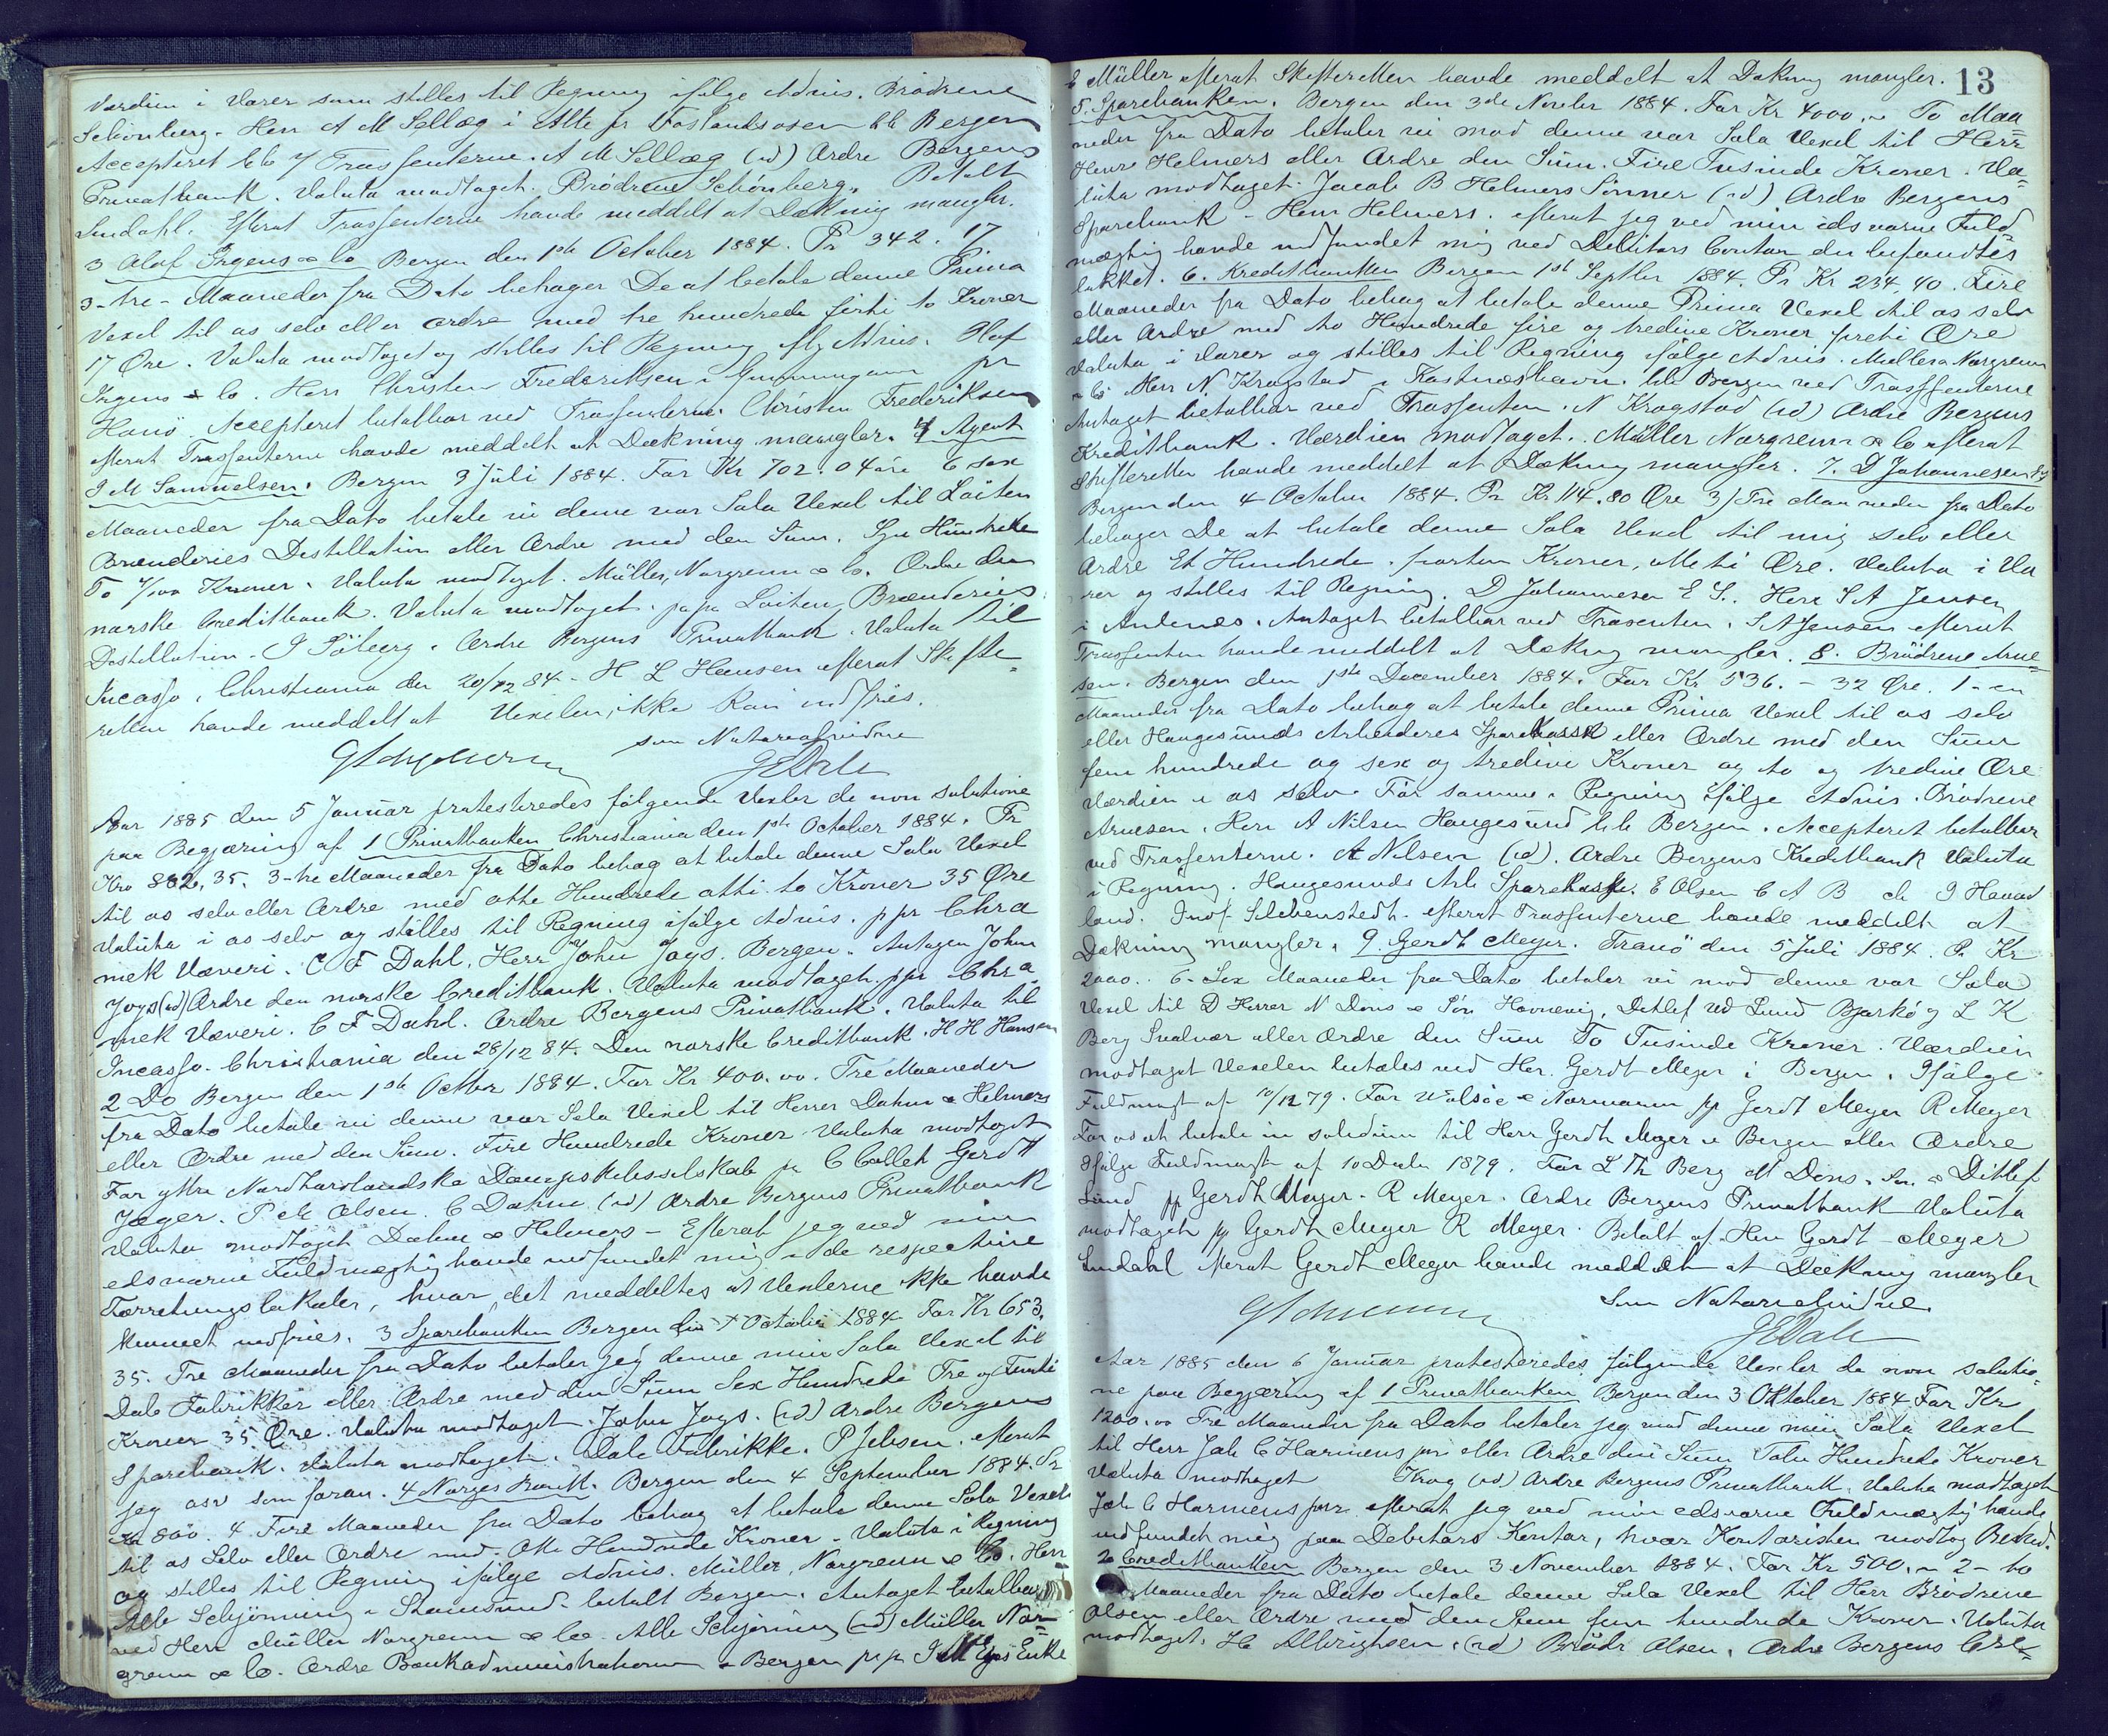 Værdien i Varer som stilles til Regning ifølge Advis. Brødrene
Schönberg. Herr A M Sellæg i Alle pr Foslandsosen bb Bergen
Accepteret bb / Trassenterne. A M Sellæg (ud) Ordre Bergens
Privatbank. Valuta modtaget. Brødrene Schönberg. Betalt
Lindahl. Efterat Trassenterne havde meddelt at Dækning mangler.
3 Olaf Irgens & Co Bergen den 1ste October 1884. Pr 342. 17
3 - tre - Maaneder fra Dato behager De at betale denne Prima
Vexel til os selv eller Ordre med tre hundrede førti to Kroner
17 Øre. Valuta modtaget og stilles til Regning iflg Advis. Olaf
Irgens & Co. Herr Christen Frederiksen i pr
Hasvø Accepteret betalbar ved Trassenterne. Christen Frederiksen
efterat Trassenterne havde meddelt at Dækning mangler. 4 Agent
J M Samuelsen. Bergen 3 Juli 1884. For Kr 702.04 øre 6 sex
Maaneder fra Dato betale vi denne vor Sola Vexel til Løiten
Brænderies Destillation eller Ordre med den Sum. Syv Hundrede
To 4/100 Kroner. Valuta modtaget. Müller, Norgrenn & Co. Ordre den
norske Creditbank. Valuta modtaget. pr pr Løiten Brænderies
Destillation. J Söberg. Ordre Bergens Privatbank. Valuta til
Incasso. Christiania den 20/12 84 - H L Hansen efterat Skifte=
retten havde meddelt at Vexelen ikke kan indfries.
som Notarialvidne
GEDahl
Aar 1885 den 5 Januar protesteredes følgende Vexler de non solutione
paa Begjæring af 1 Privatbanken Christiania den 1ste October 1884. Pr
Kro 882,35. 3-tre Maaneder fra Dato behag at betale denne Sola Vexel
til os selv eller Ordre med otte Hundrede otti to Kroner 35 Øre
Valuta i os selv og stilles til Regning ifølge Advis. ppr Chra
mek Væveri. C F Dahl. Herr John Joys. Bergen. Antagen John
Joys (ud) Ordre den norske Creditbank. Valuta modtaget ppr Chra
mek Væveri. C F Dahl. Ordre Bergens Privatbank. Valuta til
Incasso. Christiania den 28/12 84. Den norske Creditbank. H H Hansen
2 Do Bergen den 1ste Octbr 1884. For Kr 400.00. Tre Maaneder
fra Dato betale vi denne vor Sola Vexel til Herrer Dahm & Helmers
eller Ordre med den Sum. Fire Hundrede Kroner Valuta modtaget
For yttre Nordhorslandske Dampskibsselskab pr C Collet Gerdt
Jæger. P M Olsen. C Dahm (ud) Ordre Bergens Privatbank
Valuta modtaget Dahm & Helmers - Efterat jeg ved min
edsvorne Fuldmægtig havde indfundet mig i de respective
Forretningslokaler, hvor det meddeltes at Vexlerne ikke havde
kunnet indfries. 3 Sparebanken Bergen den 1 October 1884 For Kr 653.
35. Tre Maaneder fra Dato betaler jeg denne min Sola Vexel til
Dale Fabrikker eller Ordre med den Sum Sex Hundrede Tre og Femti
Kroner 35 Øre. Valuta modtaget. John Joys. (ud) Ordre Bergens
Sparebank. Valuta modtaget. Dale Fabrikke. P Jebsen. efterat
jeg osv som foran. 4 Norges Bank. Bergen den 4 September 1884. Pr
Kr 800. 4 Fire Maaneder fra Dato behag at betale denne Sola Vexel
til os Selv eller Ordre med. Otte Hundrede Kroner - Valuta i Regning
og stilles til Regning ifølge Advis. Müller, Norgrenn & Co. Herr
Albe Schjørning i Stamsund. betalt Bergen. Antaget betalbar
ved Herr Müller Norgrenn & Co. Albe Schjørning (ud) Müller Nor=
grenn & Co. Ordre Bankadministrationen i Bergen pr pr J M Enke
13
E Müller efterat Skifteretten havde meddelt at Dækning mangler.
5. Sparebanken. Bergen den 3de Novbr 1884. For Kr 4000.- To Maa=
neder fra Dato betaler vi mod denne vor Sola Vexel til Herr
Henr Helmers eller Ordre den Sum. Fire Tusinde Kroner. Va=
luta modtaget. Jacob B Helmers Sønner (ud) Ordre Bergens
Sparebank - Henr Helmers. efterat jeg ved min edsvorne Fuld=
mægtig havde indfundet mig ved Debitors Contor der befandtes
lukket. 6. Kreditbanken Bergen 1st Septbr 1884. Pr Kr 234.40. Fire
Maaneder fra Dato behag at betale denne Prima Vexel til os selv
eller Ordre med to Hundrede fire og tredive Kroner, firti Øre
Valuta i Varer og stilles til Regning ifølge Advis. Müller Norgrenn
& Co Herr N Krogstad i Kastnæshavn. bb Bergen ved Trassenterne
Antaget betalbar ved Trassenten. N Krogstad (ud) Ordre Bergens
Kreditbank. Værdien modtaget. Müller Norgrenn & Co efterat
Skifteretten havde meddelt at Dækning mangler. 7. D Johannesen
Bergen den 4 October 1884. Pr Kr 114.80 Øre 3/ Tre Maaneder fra Dato
behager De at betale denne Sola Vexel til mig selv eller
Ordre Et Hundrede fjorten Kroner, otteti Øre. Valuta i Va
rer og stilles til Regning. D Johannesen E S. Herr S A Jensen
i Andenæs. Antaget betalbar ved Trasenten. S A Jensen efterat
Trassenten havde meddelt at Dækning mangler. 8. Brødrene Arne=
sen. Bergen den 1ste December 1884. For Kr 536. - 32 Øre. 1 - en
Maaneder fra Dato behag at betale denne Prima Vexel til os selv
eller Haugesunds Arbeideres Sparekasse eller Ordre med den Sum
fem hundrede og sex og tredive Kroner og to og tredive Øre
Værdien i os selv. Før samme i Regning ifølge Advis. Brødrene
Arnesen. Herr A Nilsen Haugesund bb Bergen. Accepteret betalbar
ved Trassenterne. A Nilsen (ud). Ordre Bergens Kreditbank Valuta
i Regning. Haugesunds Arb Sparekasse. E Olsen C A B
land. efterat Trassenterne havde meddelt at
Dækning mangler. 9. Gerdt Meyer. Tranø den 5 Juli 1884. Pr Kr
2000.. 6 - Sex Maaneder fra Dato betaler vi mod denne vor Sola
Vexel til D Herrer N Dons & Søn Havnevig, Detlef Ved Lund Bjarkø og L K
Berg Svolvær eller Ordre den Sum To Tusinde Kroner. Værdien
modtaget Vexelen betales ved Her. Gerdt Meyer i Bergen. Ifølge
Fuldmagt af 10/12 79. For Wolsøe & Normann pp Gerdt Meyer R Meyer
For os at betale in solidum til Herr Gerdt Meyer i Bergen eller Ordre
Ifølge Fuldmagt af 10 Debr 1879. For L Th Berg N Dons. Søn & Ditlef
Lund pp Gerdt Meyer. R Meyer. Ordre Bergens Privatbank Valuta
modtaget pp Gerdt Meyer R Meyer. Betalt af Herr Gerdt Meyer
Lindahl efterat Gerdt Meyer havde meddelt at Dækning mangler
Som Notarialvidne.
GEDahl
Aar 1885 den 6 Januar protesteredes følgende Vexler de non solutio=
ne paa Begjæring af 1 Privatbanken Bergen den 3 Oktober 1884 For Kr
1200.00 Tre Maaneder fra Dato betaler jeg mod denne min Sola Vexel
til Herr Jab C Harmens jnr eller Ordre den Sum Tolv Hundrede Kroner
Valuta modtaget Krog (ud) Ordre Bergens Privatbank. Valuta modtaget
Jab C Harmens jnr. efterat jeg ved min edsvorne Fuldmægtig havde
indfundet mig paa Debitors Kontor, hvor Kontoristen modtog Besked.
2 Creditbanken Bergen den 3 November 1884. For Kr 500.- 2 - to
Maaneder fra Dato betale denne Sola Vexel til Herr Brødrene
Olsen eller Ordre med den Sum fem hundrede Kroner. Valuta
modtaget. H Albrigtsen. (ud) Brødr Olsen. Ordre Bergens Cre=